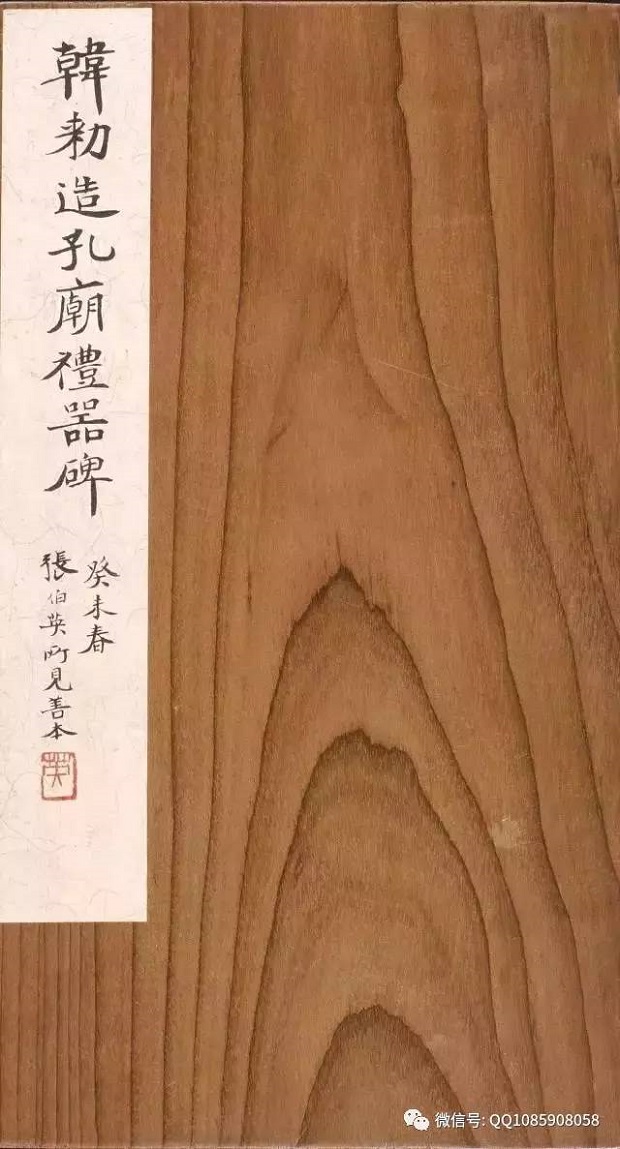 韓勑造孔廟禮器碑
癸未春
張伯英所見善本
英
微信号: QQ1085908058